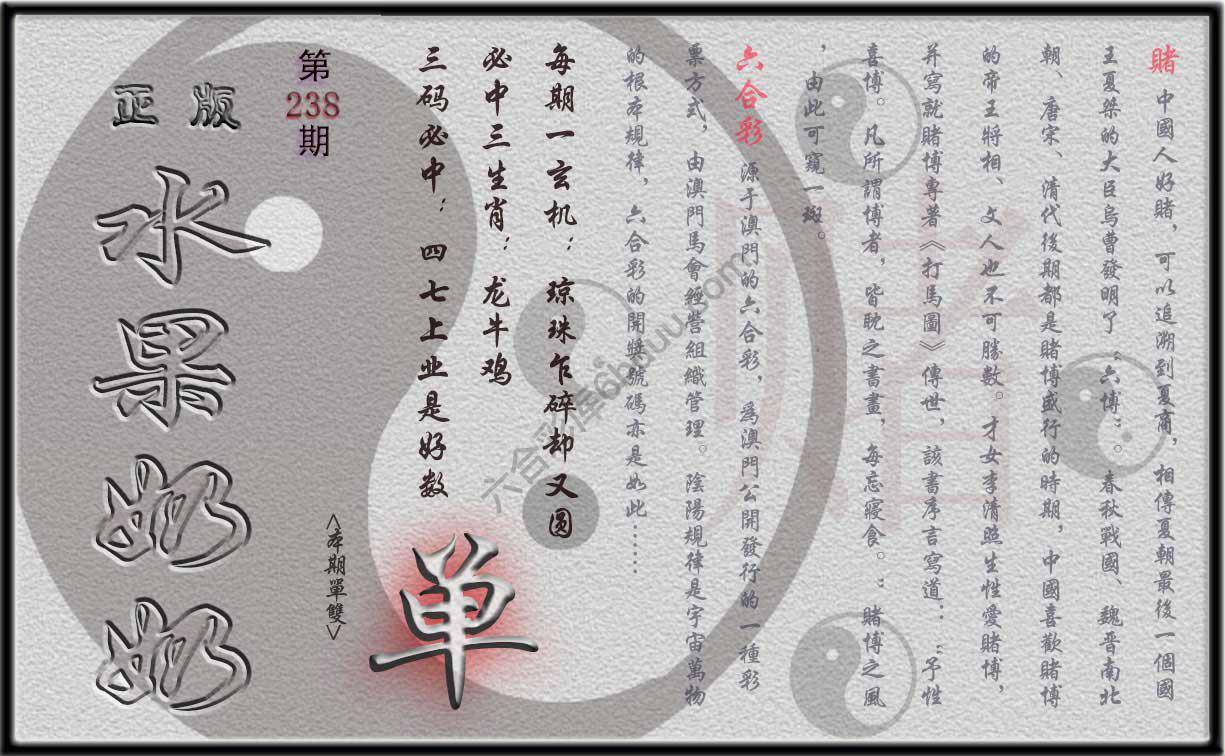 賭 中國人好賭，可以追溯到夏商，相傳夏朝最後一個國
王夏桀的大臣烏曹發明了“六博”。春秋戰國、魏晋南北
朝、唐宋、清代後期都是賭博盛行的時期，中國喜歡賭博
的帝王將相、文人也不可勝數。才女李清照生性愛賭博，
并寫就賭博專著《打馬圖》傳世，該書序言寫道：“予性
喜博。凡所謂博者，皆耽之書畫，每忘寢食。：賭博之風
，由此可窺一斑。
六合彩 源于澳門的六合彩，爲澳門公開發行的一種彩
票方式，由澳門馬會經營組織管理。陰陽規律是宇宙萬物
的根本規律，六合彩的開獎號碼亦是如此……
每期一玄机：琼珠乍碎却又圆
必中三生肖：龙牛鸡
三码必中：四七上业是好数
单
<本期單雙>
第
238
期
正版
水果奶奶
賭